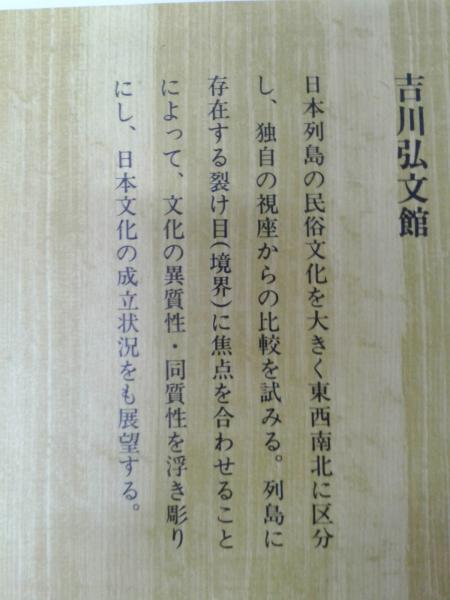 吉川弘文館
日本列島の民俗文化を大きく東西南北に区分
し、独自の視座からの比較を試みる。列島に
存在する裂け目(境界)に焦点を合わせること
によって、文化の異質性・同質性を浮き彫り
にし、日本文化の成立状況をも展望する。